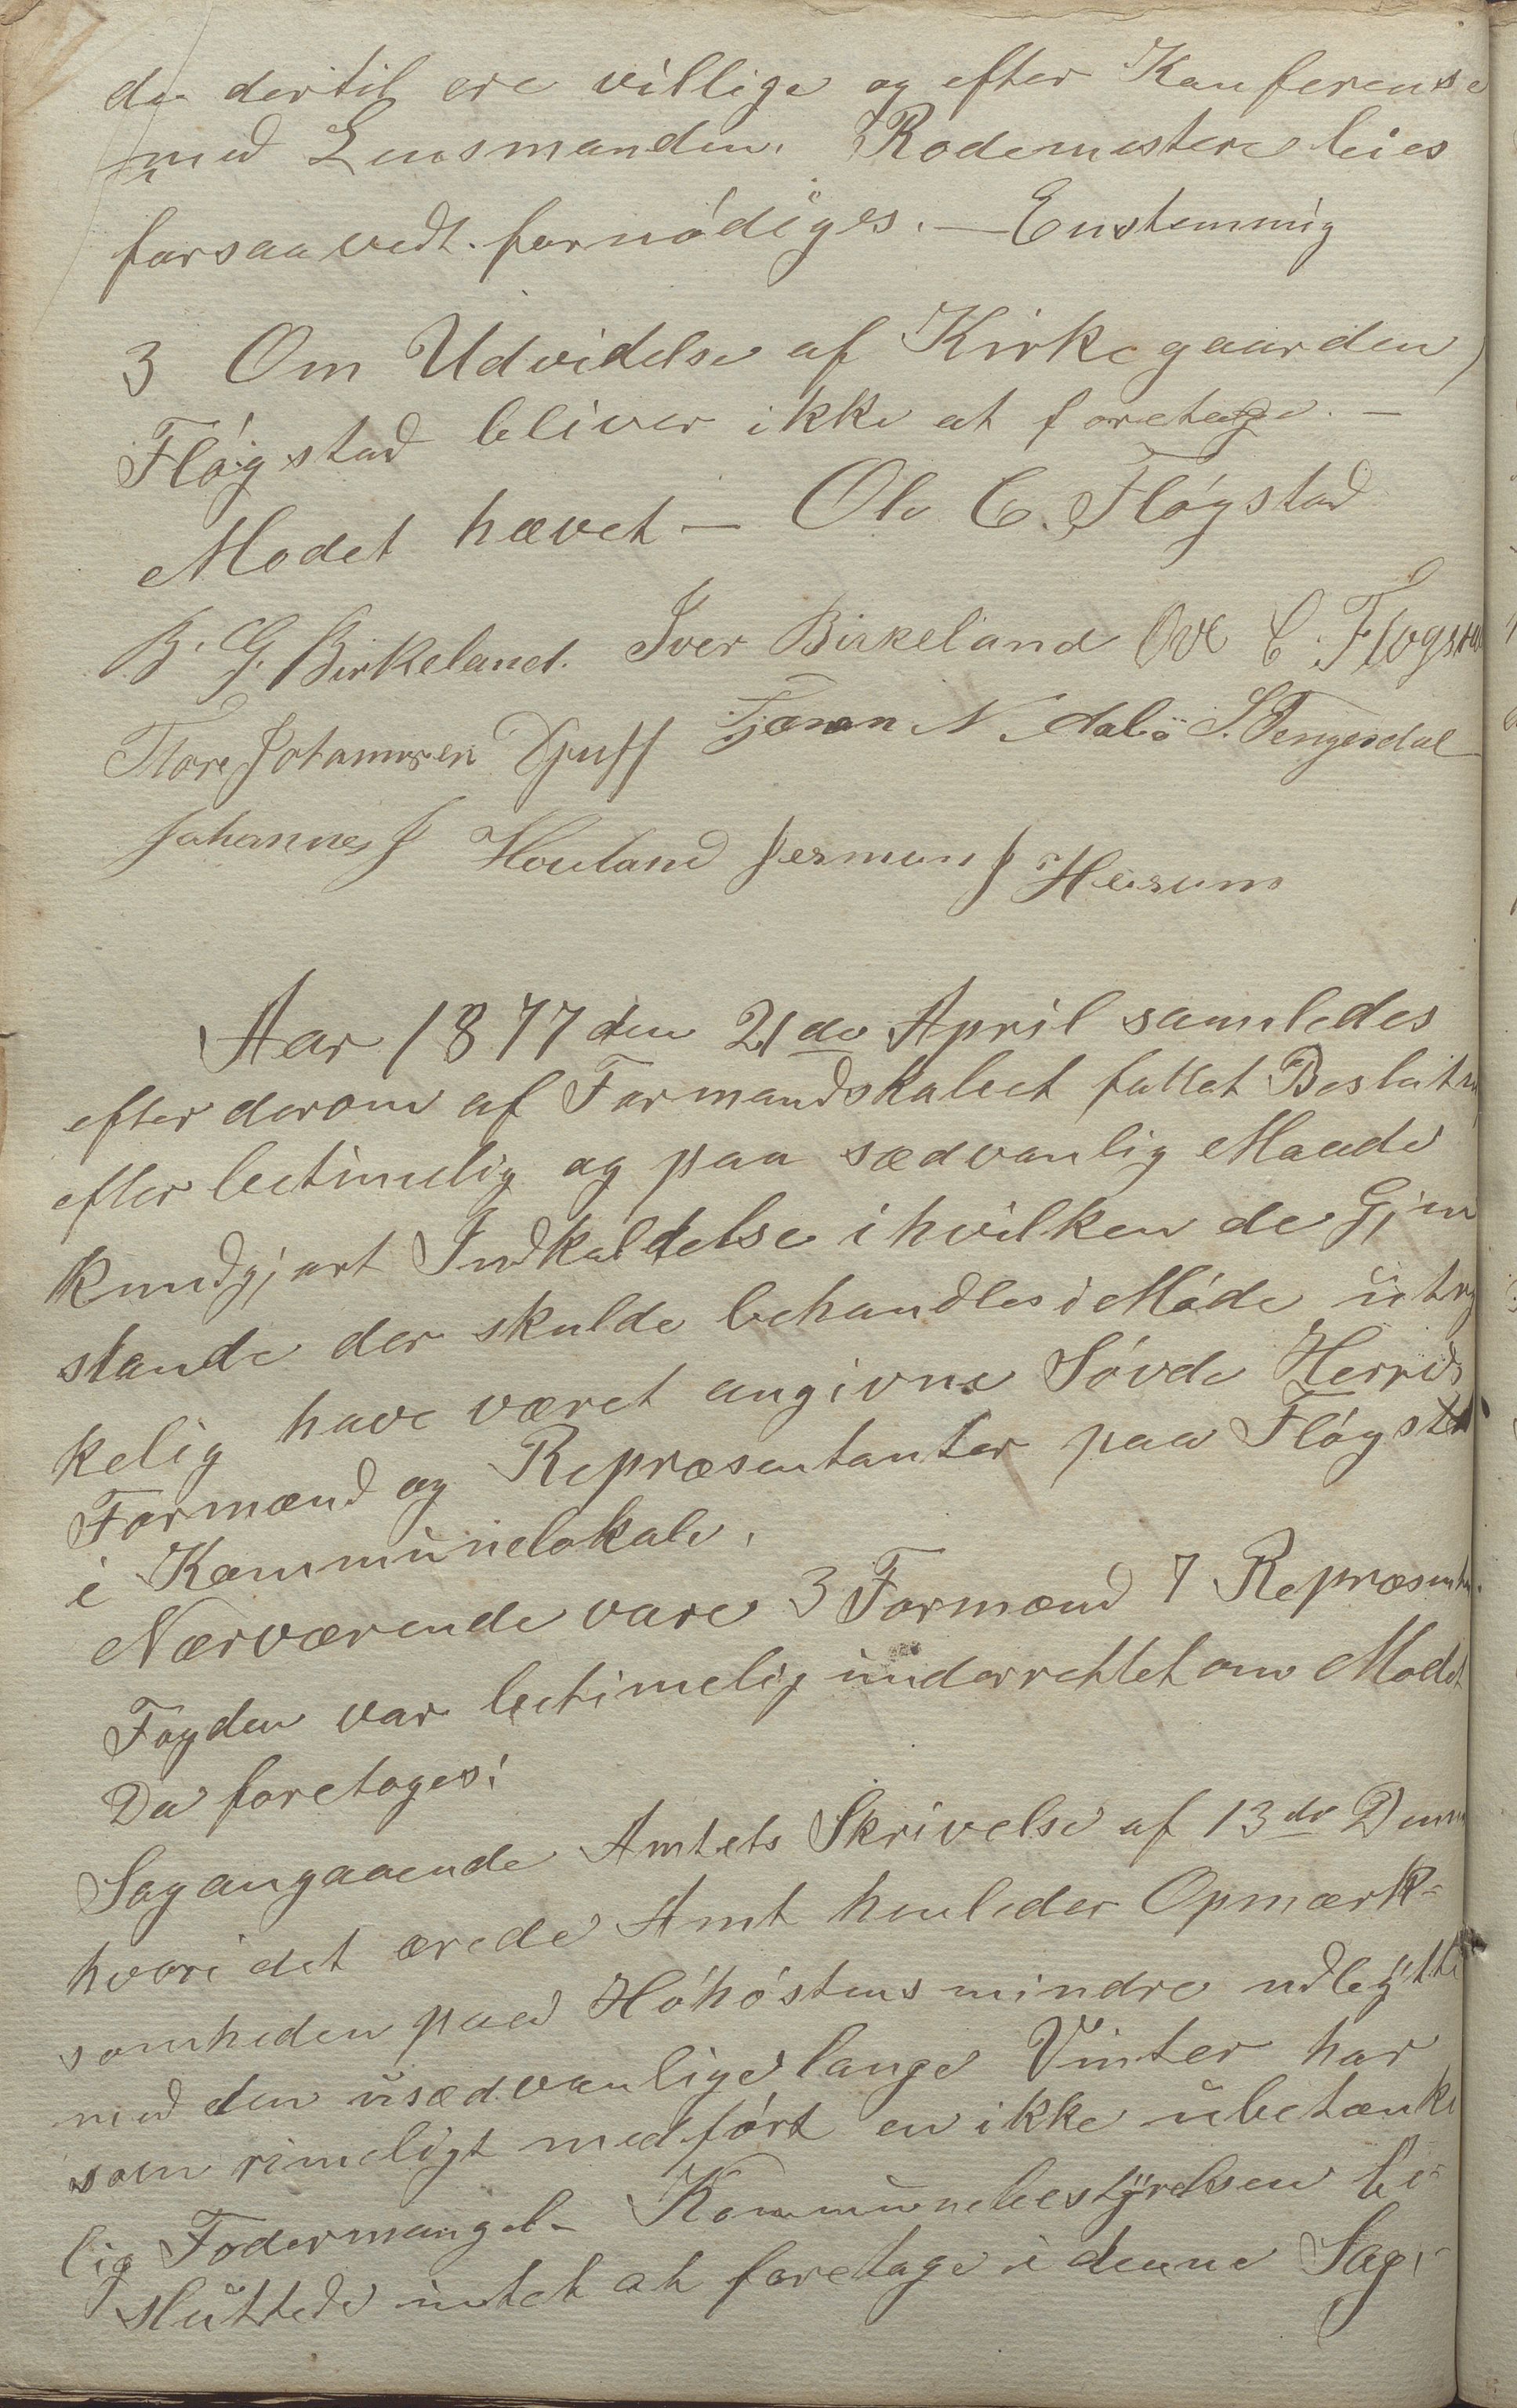 da dertil ere villige og efter Konferense
med Lensmanden. Rodemestere leies
forsaavedt fornødiges. — Enstemmig
3 Om Udvidelse af Kirkegaarden,
Fløgstad bliver ikke at foretage. —
Mødet hævet — Ole C. Fløgstad
B. G. Birkeland. Iver Birkeland Ove C. Fløgstad
Tore Johannesen N. S. Tengesdal
Johannes J Houland J Heirum
Aar 1877 den 21de April samledes
efter derom af Formandskabet fattet Beslutn
efter betimelig og paa sædvanlig Maade
kundgjort Indkaldelse i hvilken de Gjen
stande der skulde behandles i Møde utry
kelig have været angivne Søvde Herreds
Formænd og Repræsentanter paa Fløgstad
i Kommunelokale.
Nærværende vare 3 Formænd 7 Repræsent.
Fogden var betimelig underrettet om Mødet
Da foretoges:
Sag angaaende Amtets Skrivelse af 13de Dennes
hvori det ærede Amt henleder Opmærk-
somheden paa Høhøstens mindre udbytte
med den usædvanlige lange Vinter har
som rimeligt medført en ikke ubetænke
lig Fodermangel. Kommunebestyrelsen be-
sluttede intet at foretage i denne Sag.